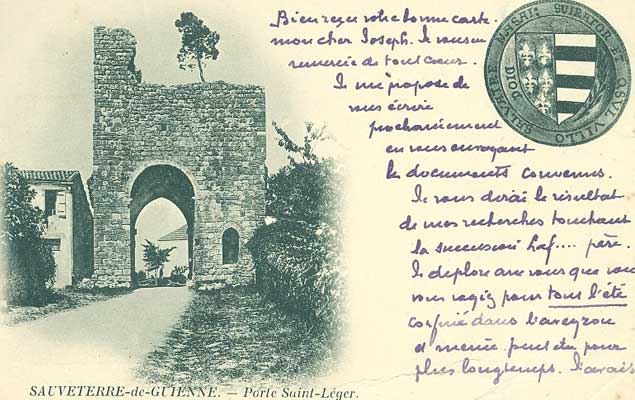 Bien reçu votre bonne carte
mon cher Joseph. Je vous en
remercie de tout cœur.
Je me propose de
vous écrire
prochainement
en vous envoyant
les documents convenus.
Je vous dirai le résultat
de mes recherches touchant
la succession Laf.... père.
Je déplore avec vous que vous
vous soyiez pour tout l'été
confiné dans l'aveyron
et même peut etre pour
plus longtemps. J'avais
SAUVETERRE-de-GUIENNE. — Porte Saint-Léger.